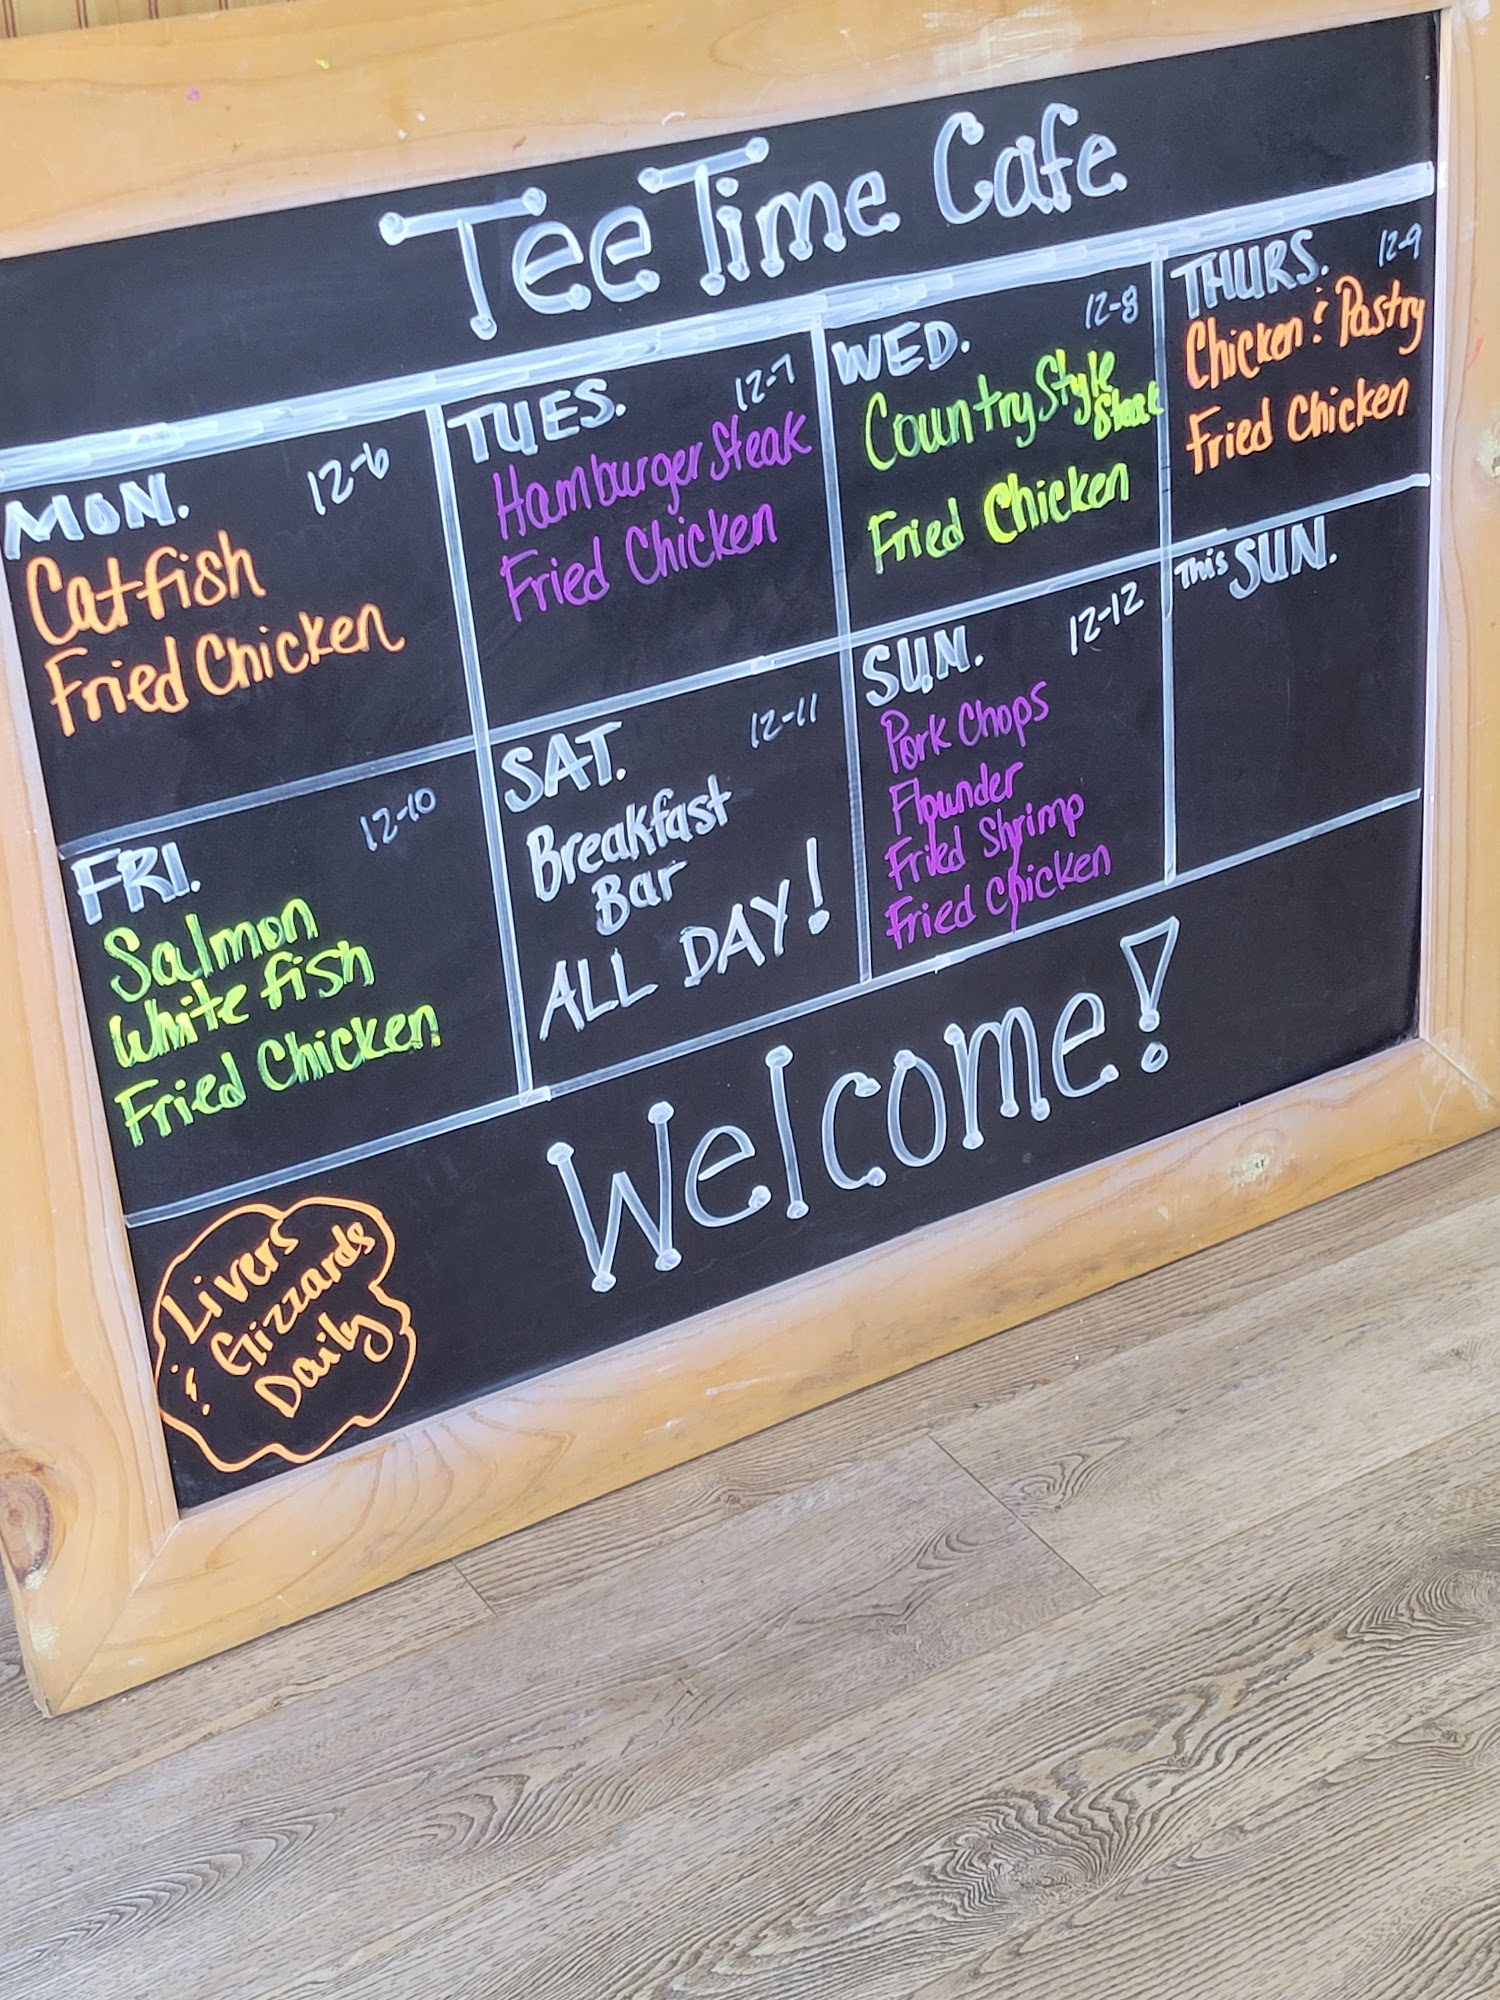 Tee Time Cafe
MON. 12-6
Catfish
Fried Chicken
TUES. 12-7
Hamburger Steak
Fried Chicken
WED. 12-8
Country Style
Steak
Fried Chicken
THURS. 12-9
Chicken & Pastry
Fried Chicken
FRI. 12-10
Salmon
White fish
Fried Chicken
SAT. 12-11
Breakfast
Bar
ALL DAY!
SUN. 12-12
Pork Chops
Flounder
Fried Shrimp
Fried Chicken
This SUN.
Livers
& Gizzards
Daily
Welcome!